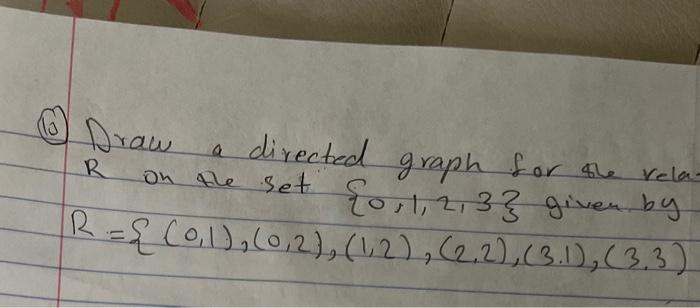 (b) Draw a directed graph for the rela-
R on the set {0,1,2,3} given by
R = { (0,1), (0,2), (1,2), (2,2), (3.1), (3,3)